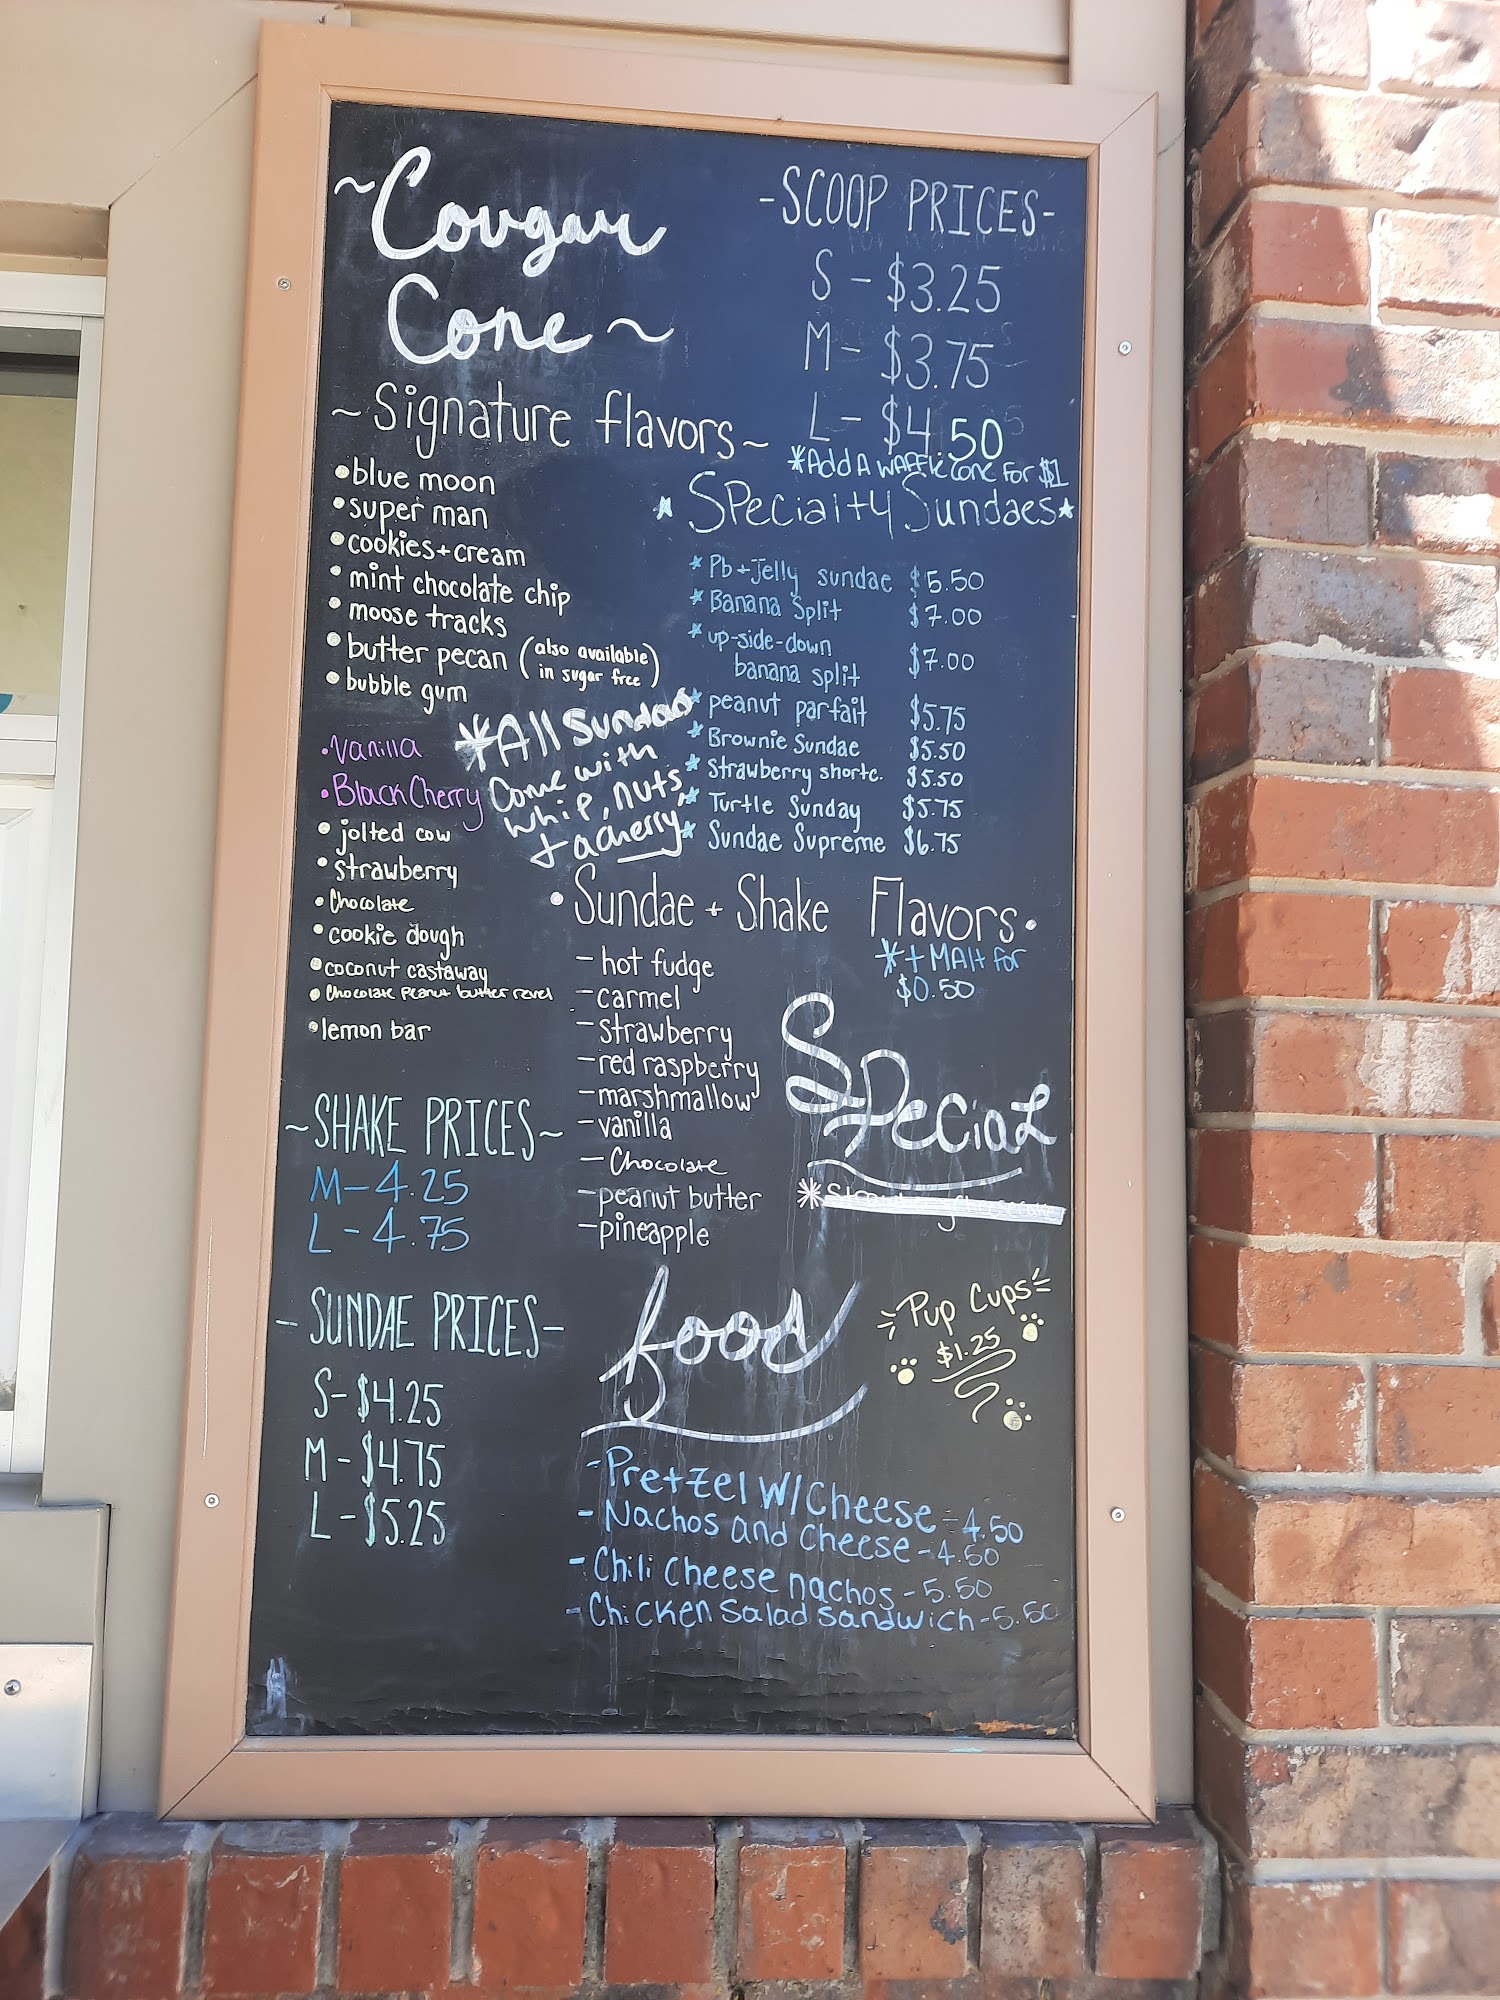 ~Cougar
Cone~
~Signature flavors~
•blue moon
•super man
•cookies+cream
•mint chocolate chip
•moose tracks
•butter pecan (also available
in sugar free)
•bubble gum
•Vanilla
•Black Cherry
•jolted cow
•strawberry
•Chocolate
•cookie dough
•coconut castaway
•Chocolate Peanut butter revel
•lemon bar
*All Sundaes
Come with
whip, nuts,
+ a cherry
~SHAKE PRICES~
M-4.25
L-4.75
-SUNDAE PRICES-
S-$4.25
M-$4.75
L-$5.25
-SCOOP PRICES-
S-$3.25
M-$3.75
L-$4.50
*Add A WAFFLE Cone For $1
★ Specialty Sundaes★
*Pb+Jelly sundae $5.50
*Banana Split $7.00
*up-side-down
banana split $7.00
*peanut parfait $5.75
*Brownie Sundae $5.50
*Strawberry shortc. $5.50
*Turtle Sunday $5.75
*Sundae Supreme $6.75
•Sundae + Shake Flavors•
*+ MAlt for
$0.50
-hot fudge
-carmel
-strawberry
-red raspberry
-marshmallow
-vanilla
-Chocolate
-peanut butter
-pineapple
Special
*Strawberry Cheesecake
Pup Cups
$1.25
food
-Pretzel W/Cheese-4.50
-Nachos and Cheese-4.50
-Chili Cheese nachos-5.50
-Chicken Salad Sandwich-5.50